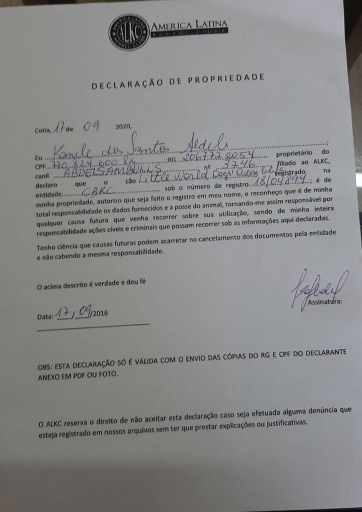 ALKC
AMERICA LATINA
KENNEL CLUB
DECLARAÇÃO DE PROPRIEDADE
Cotia, 17 de 09 2020,
Eu Kamile dos Santos
CPF RG proprietário do
canil nº 3746 filiado ao ALKC,
declaro que o cão Little World registrado na
entidade CBKC sob o número de registro é de
minha propriedade, autorizo que seja feito o registro em meu nome, e reconheço que é de minha
total responsabilidade os dados fornecidos e a posse do animal, tornando-me assim responsável por
qualquer causa futura que venha recorrer sobre sua utilização, sendo de minha inteira
responsabilidade ações cíveis e criminais que possam recorrer sob as informações aqui declaradas.
Tenho ciência que causas futuras podem acarretar no cancelamento dos documentos pela entidade
e não cabendo a mesma responsabilidade.
O acima descrito é verdade e dou fé
Assinatura:
Data: 17/09/2016
OBS: ESTA DECLARAÇÃO SÓ É VÁLIDA COM O ENVIO DAS CÓPIAS DO RG E CPF DO DECLARANTE
ANEXO EM PDF OU FOTO.
O ALKC reserva o direito de não aceitar esta declaração caso seja efetuada alguma denúncia que
esteja registrado em nossos arquivos sem ter que prestar explicações ou justificativas.